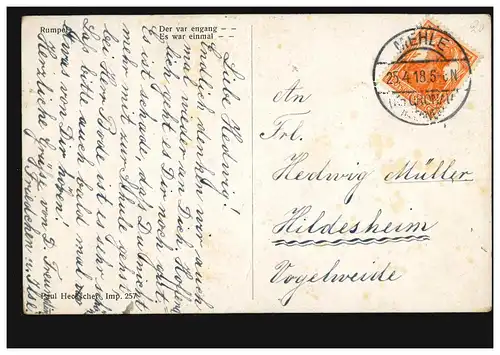 Rumpel
Der var engang – –
Es war einmal – –
Liebe Hedwig!
Endlich denken wir auch
mal wieder an Dich. Hoffentl.
geht es Dir noch gut.
Es ist schade, das Du nicht
mehr mit zur Schule gehst
bei Herr Bode ist es sehr
Laß bitte auch bald mal
etwas von Dir hören!
Herzliche Grüße von D. Freundin
Friedchen u. Ilse.
Paul Heckscher, Imp. 257
MEHLE
25.4.18.5-6N
An
Frl.
Hedwig Müller
Hildesheim
Vogelweide